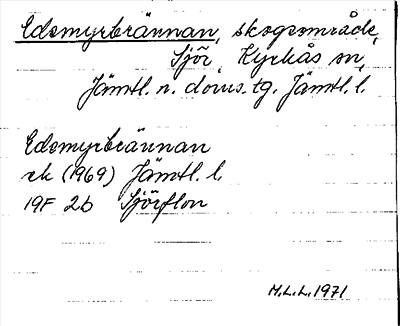 Edsmyrbrännan, skogsområde,
Sjör, Kyrkås sn,
Jämtl. n. doms. tg. Jämtl. l.
Edsmyrbrännan
ek (1969) Jämtl. l.
19F 2b Sjörflon
M.L.L. 1971